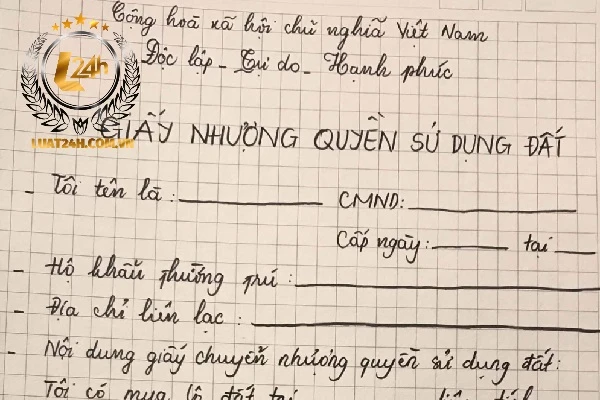 Cộng hoà xã hội chủ nghĩa Việt Nam
Độc lập - Tự do - Hạnh phúc
L24h
LUAT24H.COM.VN
GIẤY NHƯỢNG QUYỀN SỬ DỤNG ĐẤT
- Tôi tên là: CMND:
Cấp ngày: tại
- Hộ khẩu thường trú:
- Địa chỉ liên lạc:
- Nội dung giấy chuyển nhượng quyền sử dụng đất:
Tôi có mua lô đất tại